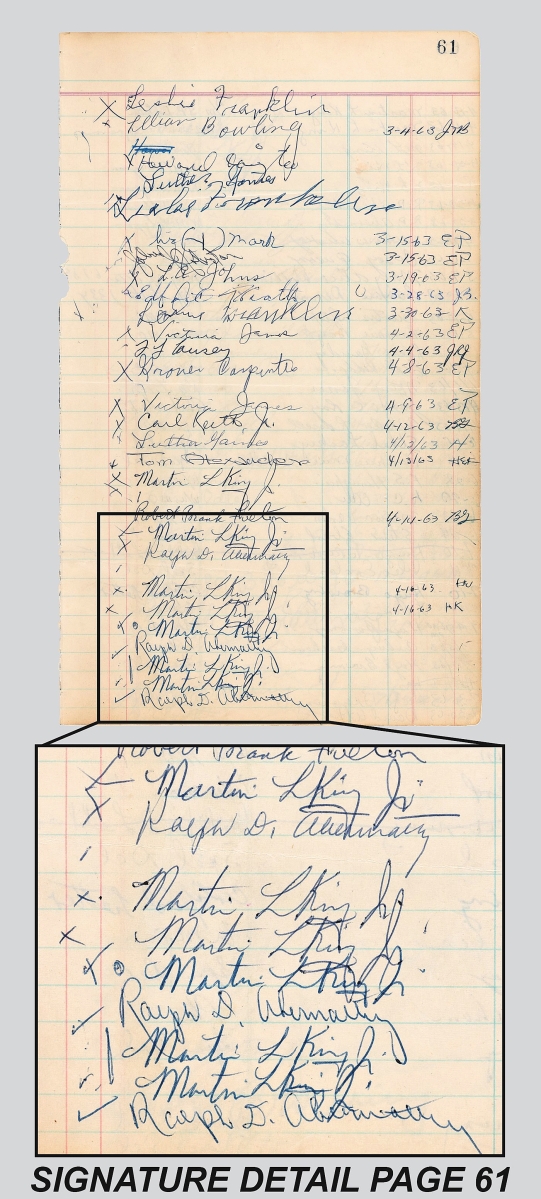 61
Leslie Franklin
Lillian Bowling 3-4-63 JTB
Howard
Luther
his (+) mark 3-15-63 EP
3-15-63 EP
L.C. Johns 3-19-63 EP
3-28-63
3-30-63 K
Victoria Jones 4-2-63 EP
4-4-63
Grover Carpenter 4-8-63 EP
Victoria Jones 4-9-63 EP
Carl Keith, Jr. 4-12-63
Luther 4/13/63
Tom Alexander 4/13/63
Martin L King Jr.
Robert Frank Fulton 4-14-63
Martin L King Jr
Ralph D. Abernathy
Martin L King Jr 4-16-63
Martin L King Jr 4-16-63 HK
Martin L King Jr.
Ralph D. Abernathy
Martin L King Jr.
Martin L King Jr.
Ralph D. Abernathy
Robert Frank Fulton
Martin L King Jr
Ralph D. Abernathy
Martin L King Jr
Martin L King Jr
Martin L King Jr.
Ralph D. Abernathy
Martin L King Jr.
Martin L King Jr.
Ralph D. Abernathy
SIGNATURE DETAIL PAGE 61